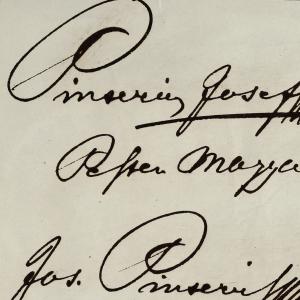 Pinserics Josef
Pessen Mazza
Jos. Pinseri